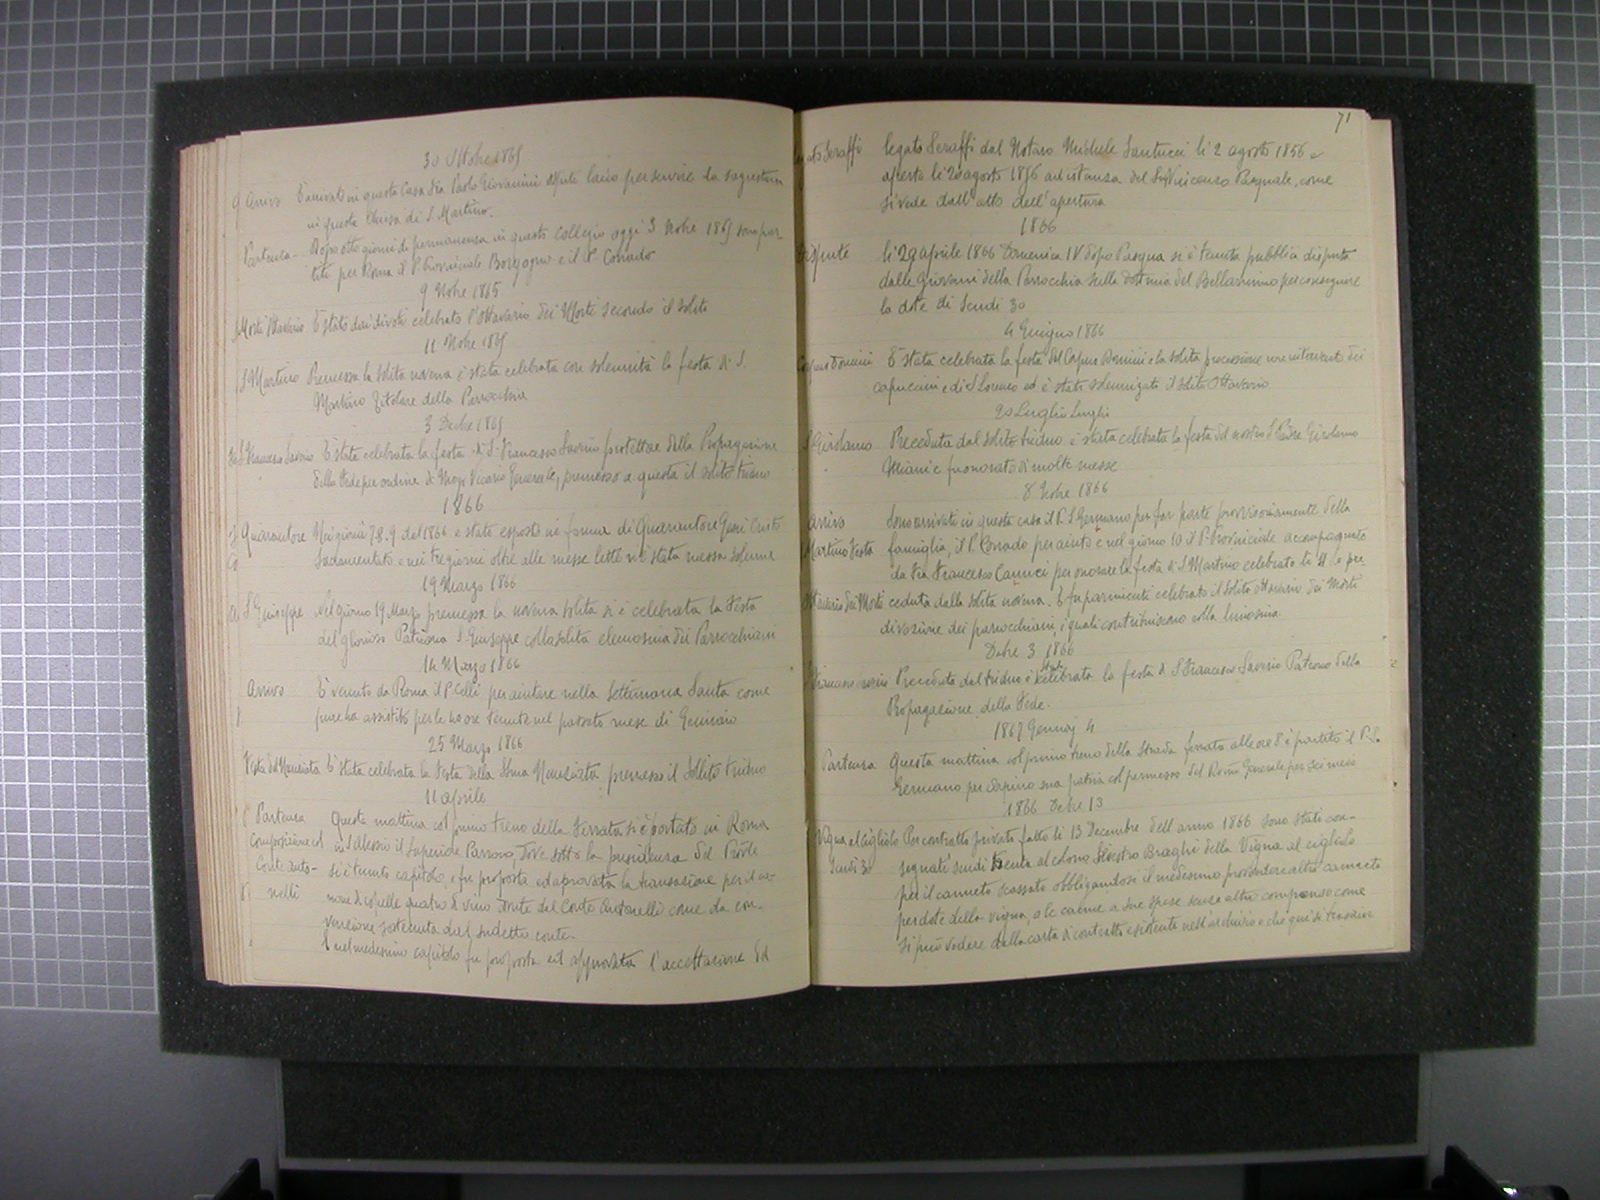 30 Ottobre 1865
Arrivo È arrivato in questa Casa Fra Paolo Giovannini ospite laico per servire la sagrestia
in questa Chiesa di S. Martino.
Partenza Dopo otto giorni di permanenza in questo Collegio oggi 3 9bre 1865 sono par
titi per Roma il P. Provinciale Borgogno e il P. Corrado
9 9bre 1865
Morti Ottavario È stato dai divoti celebrato l'Ottavario dei Morti secondo il solito
11 9bre 1865
S. Martino Premessa la solita novena è stata celebrata con solennità la festa di S.
Martino Titolare della Parrocchia
3 Dcbre 1865
S. Francesco Saverio È stata celebrata la festa di S. Francesco Saverio protettore della Propagazione
della Fede per ordine di Monsr Vicario Generale, premesso a questa il solito triduo
1866
Quarantore Nei giorni 7.8.9 del 1866 è stato esposto in forma di Quarantore Gesù Cristo
Sacramentato e nei tre giorni oltre alle messe lette vi è stata messa solenne
19 Marzo 1866
S. Giuseppe Nel giorno 19 Marzo premessa la novena solita si è celebrata la Festa
del glorioso Patriarca S. Giuseppe colla solita elemosina dei Parrocchiani
14 Marzo 1866
Arrivo È venuto da Roma il P. Celli per aiutare nella Settimana Santa come
pure ha assistito per le 40 ore tenute nel passato mese di Gennaio
25 Marzo 1866
Festa dell'Annunziata È stata celebrata la Festa della SSma Nunziata premesso il sollito triduo
11 aprile
Partenza Questa mattina col primo treno della Ferrata si è portato in Roma
Composizione col in S. Alessio il Superiore Parroco, dove sotto la presidenza del Provle
Conte Anto- si è tenuto capitolo, e fu proposta ed approvata la transazione per il ca-
nelli none di quelle quattro di vino dovute dal Conte Antonelli come da con-
venzione sostenuta dal sudetto conte.
E nel medesimo capitolo fu proposta ed approvata l'accettazione del
71
Legato Seraffi legato Seraffi dal Notaro Michele Santucci li 2 agosto 1856 e
aperto li 20 agosto 1856 ad istanza del Sig. Vincenzo Pasquale, come
si vede dall'atto dell'apertura
1866
Dispute li 29 aprile 1866 Domenica IV dopo Pasqua si è tenuta pubblica disputa
dalle Giovani della Parrocchia sulla dottrina del Bellarmino per conseguire
la dote di Scudi 30
4 Giugno 1866
Corpus Domini È stata celebrata la festa del Corpus Domini e la solita processione con intervento dei
capuccini e di S. Lorenzo ed è stato solennizzato il solito Ottavario
20 Luglio Luglio
S. Girolamo Preceduta dal solito triduo è stata celebrata la festa del nostro S. Padre Girolamo
Miani e fu onorato di molte messe
8 9bre 1866
Arrivo Sono arrivati in questa casa il P. S. Germano per far parte provvisoriamente della
Martino Festa famiglia, il P. Corrado per aiuto e nel giorno 10 il P. Provinciale accompagnato
da Fra Francesco Cannuci per onorare la festa di S. Martino celebrato li 11 e pre
Ottavario dei Morti ceduta dalla solita novena. E fu parimenti celebrato il solito ottavario dei Morti
divozione dei parrocchiani, i quali contribuiscono colla limosina.
Dcbre 3 1866
S. Francesco Saverio Preceduta dal triduo è stata celebrata la festa di S. Francesco Saverio Patrono della
Propagazione della Fede.
1867 Gennaj 4
Partenza Questa mattina col primo treno della Strada ferrata alle ore 8 è partito il P. S.
Germano per Arpino sua patria col permesso del Rmo Generale per sei mesi
1866 Dcbre 13
Vigna al Cigliolo Per contratto privato fatto li 13 Decembre dell'anno 1866 sono stati con-
Scudi 30 segnati scudi trenta al colono Silvestro Braghi della Vigna al cigliolo
per il canneto scassato obbligandosi il medesimo provvedere altro canneto
per dote della vigna, e le canne a sue spese senza altro compenso come
si può vedere dalla carta di contratto esistente nell'archivio e che qui si trascrive